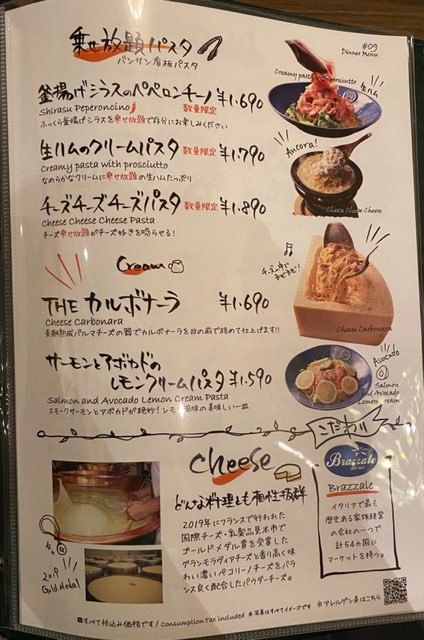 乗せ放題パスタ
パンサン看板パスタ
#09
Dinner Menu
釜揚げシラスのペペロンチーノ ¥1.690
Shirasu Peperoncino 数量限定
ふっくら釜揚げシラスを乗せ放題で存分にお楽しみください
Creamy pasta with prosciutto
生ハム
生ハムのクリームパスタ 数量限定 ¥1.790
Creamy pasta with prosciutto
なめらかなクリームに乗せ放題の生ハムたっぷり
Ancora!
チーズチーズチーズパスタ 数量限定 ¥1.890
Cheese Cheese Cheese Pasta
チーズ乗せ放題がチーズ好きを唸らせる!
Cheese Cheese Cheese
Cream
チーズの中で
THE カルボナーラ ¥1.690
Cheese Carbonara
長期熟成パルマチーズの器でカルボナーラを目の前で絡めて仕上げます!!
Cheese Carbonara
サーモンとアボカドの
レモンクリームパスタ ¥1.590
Salmon and Avocado Lemon Cream Pasta
スモークサーモンとアボカドが絶妙!レモン風味の美味しい一皿
Avocado
Salmon
and Avocado
Lemon Cream
こだわり
cheese
どんな料理とも相性抜群
2019年にフランスで行われた
国際チーズ・乳製品見本市で
ゴールドメダル賞を受賞した
グランモラヴィアチーズと香り高く味
わい濃いペコリーノチーズをバラ
ンス良く配合したパウダーチーズ。
2019
Gold Medal!
Brazzale
Brazzale
イタリアで最も
歴史ある家族経営
の会社の一つで
計54カ国に
マーケットを持つ。
すべて税込み価格です / Consumption Tax included ※写真はすべてイメージです ※アレルゲン表はこちら